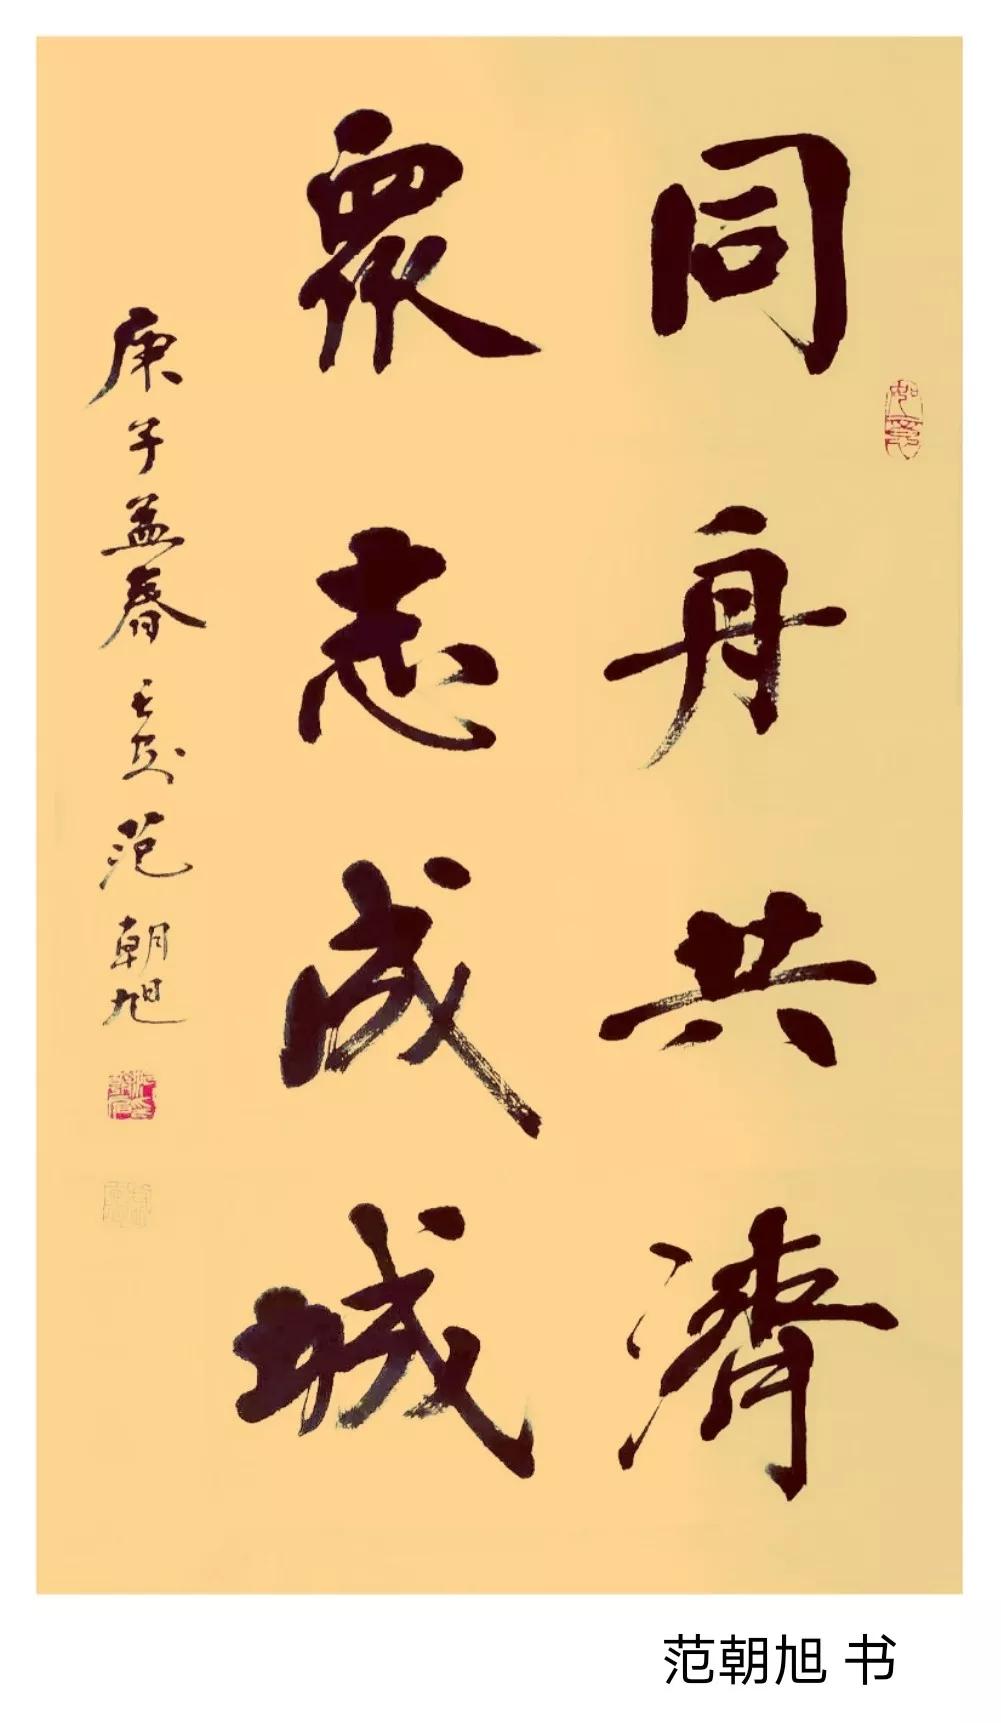 同舟共濟
眾志成城
庚子孟春
范朝旭
范朝旭 书